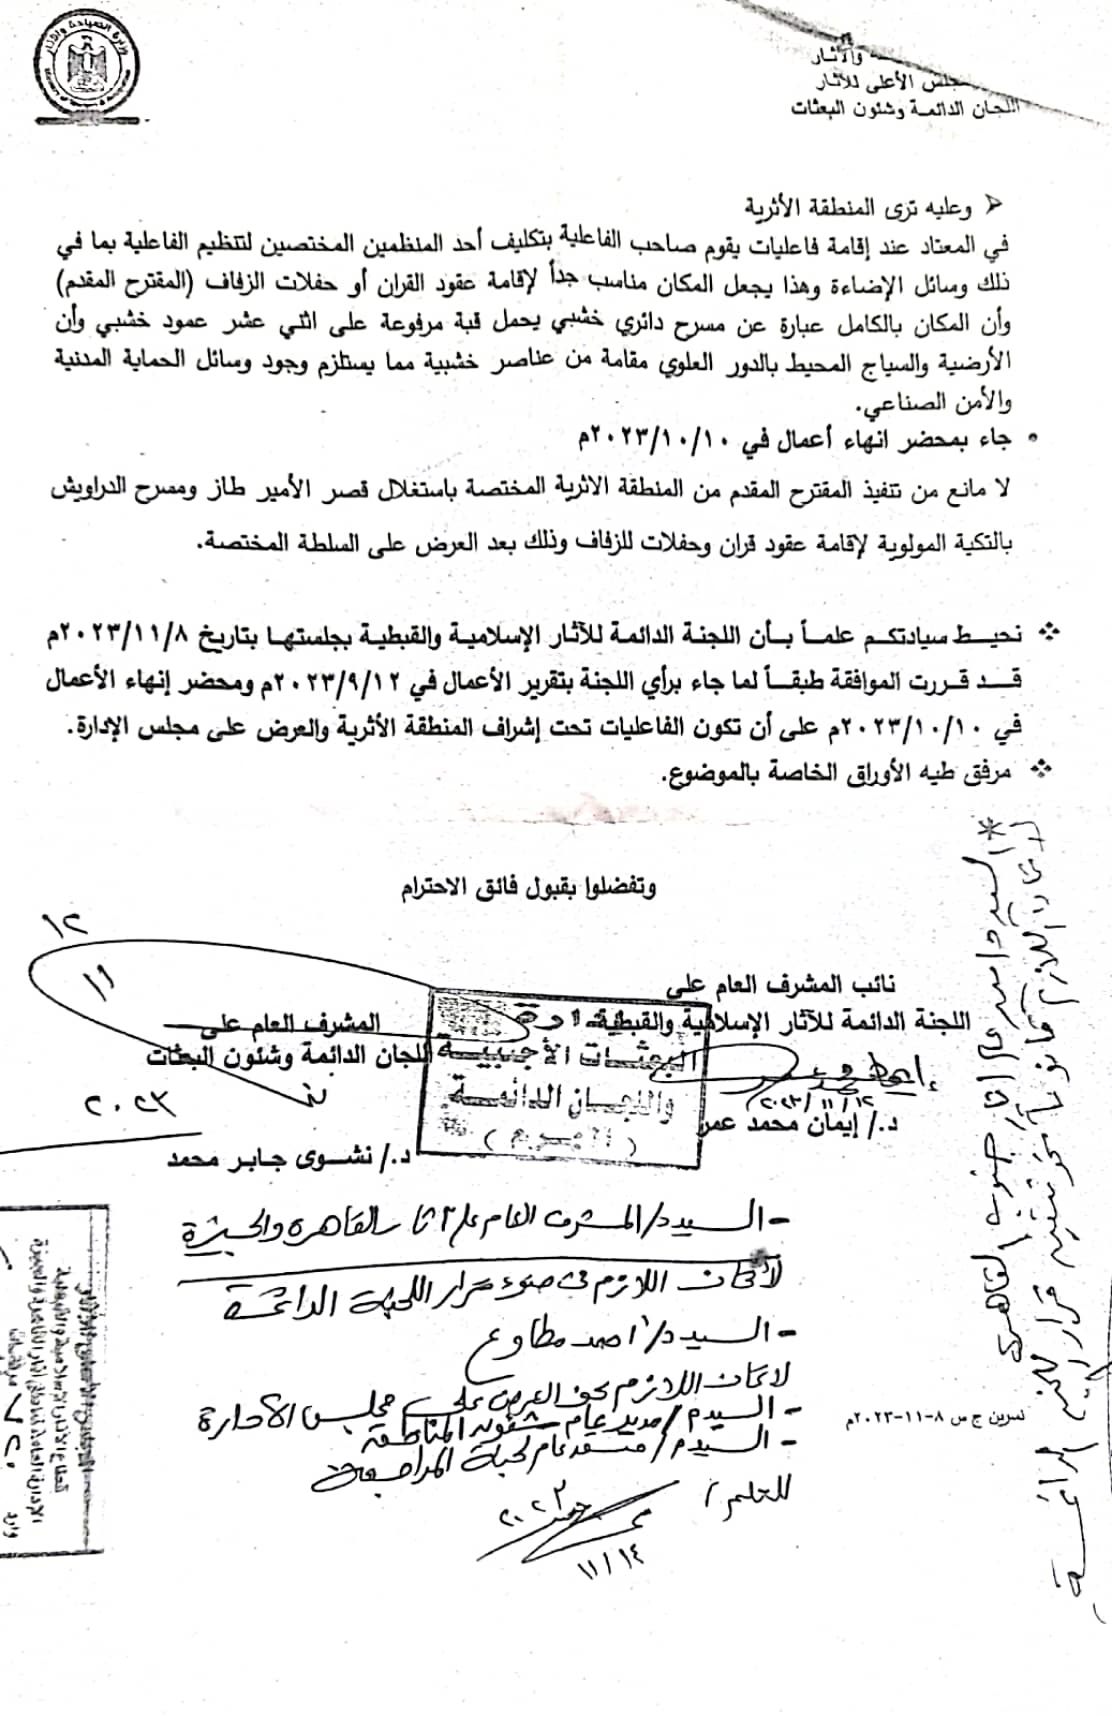 والآثار
مجلس الأعلى للآثار
اللجان الدائمة وشئون البعثات
وعليه ترى المنطقة الأثرية
في المعتاد عند إقامة فاعليات يقوم صاحب الفاعلية بتكليف أحد المنظمين المختصين لتنظيم الفاعلية بما في
ذلك وسائل الإضاءة وهذا يجعل المكان مناسب جداً لإقامة عقود القران أو حفلات الزفاف (المقترح المقدم)
وأن المكان بالكامل عبارة عن مسرح دائري خشبي يحمل قبة مرفوعة على اثني عشر عمود خشبي وأن
الأرضية والسياج المحيط بالدور العلوي مقامة من عناصر خشبية مما يستلزم وجود وسائل الحماية المدنية
والأمن الصناعي.
• جاء بمحضر انهاء أعمال في ٢٠٢٣/١٠/١٠م
لا مانع من تنفيذ المقترح المقدم من المنطقة الاثرية المختصة باستغلال قصر الأمير طاز ومسرح الدراويش
بالتكية المولوية لإقامة عقود قران وحفلات للزفاف وذلك بعد العرض على السلطة المختصة.
نحيط سيادتكم علماً بأن اللجنة الدائمة للآثار الإسلامية والقبطية بجلستها بتاريخ ٢٠٢٣/١١/٨م
قد قررت الموافقة طبقاً لما جاء برأي اللجنة بتقرير الأعمال في ٢٠٢٣/٩/١٢م ومحضر إنهاء الأعمال
في ٢٠٢٣/١٠/١٠م على أن تكون الفاعليات تحت إشراف المنطقة الأثرية والعرض على مجلس الإدارة.
مرفق طيه الأوراق الخاصة بالموضوع.
وتفضلوا بقبول فائق الاحترام
نائب المشرف العام على
اللجنة الدائمة للآثار الإسلامية والقبطية
٢٠٢٣/١١/١٢
د./ إيمان محمد عمر
١٢
١١
٢٠٢٣
المشرف العام على
اللجان الدائمة وشئون البعثات
د./ نشوى جابر محمد
البعثات الأجنبية
واللجان الدائمة
(الهرم)
- السيد د/ المشرف العام على آثار القاهرة والجيزة
لاتخاذ اللازم في ضوء قرار اللجنة الدائمة
- السيد د/ احمد مطاوع
لاتخاذ اللازم نحو العرض على مجلس الادارة
- السيد م/ مدير عام شئون المناطق
- السيد م/ عام لجنة المراجعة
للعلم /
٢٠٢٣
١١/١٤
نسرين ج س ٨-١١-٢٠٢٣م
* السيد د/ مدير عام آثار جنوب القاهرة
لاتخاذ اللازم قانوناً نحو تنفيذ قرار اللجنة الدائمة